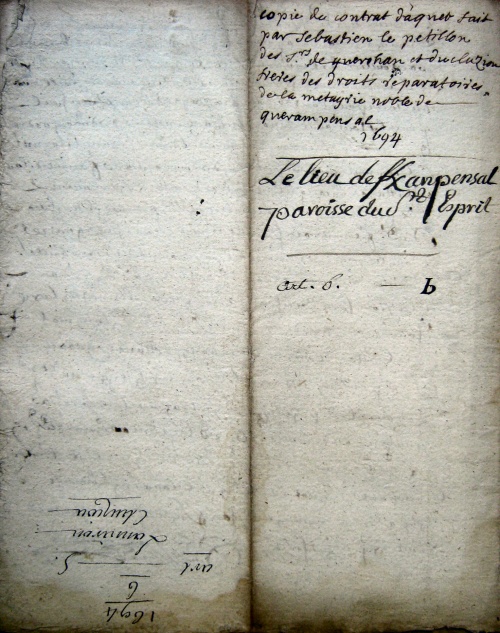 copie de contrat d'aquet fait
par sebastien le petillon
des s.rs de querohan et du cluziou
freres des droits reparatoires
de la metayrie noble de
querampensal
1694
Le lieu de Kanpensal
paroisse du S.nt Esprit
art. 6. — b
1694
6
art S.
Lannion